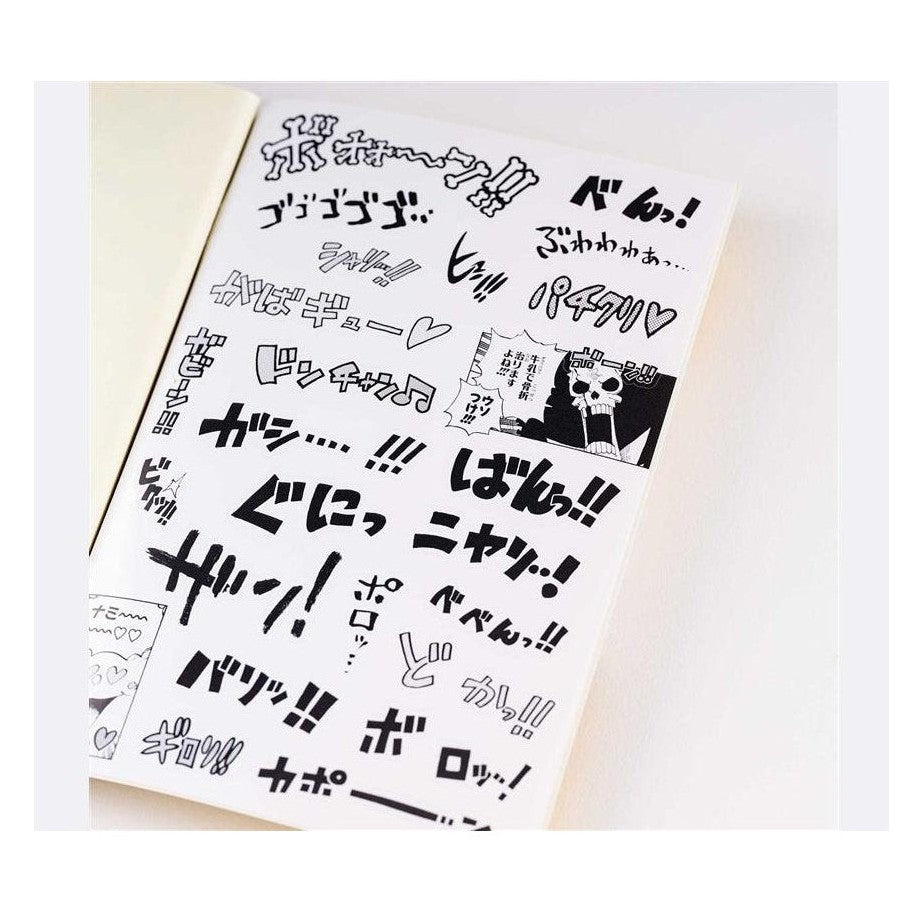 ボォォ〜〜ン!!!
べんっ!
ゴゴゴゴゴ…
ぶわわわぁっ…
シャリッ!!
ヒュッ!!!
パチクリ♡
やばギュー♡
ギャーン!!!
ブンチャン♪
牛乳で骨折
治ります
よね!!!
ウソ
つけ!!!
ボーン!!!
ガシ…. !!!
ばんっ!!
ビクッ!!
ぐにっ
ニヤリ…!
ザン!
ポロッ…
べべんっ!!
ナミ〜〜
〜〜♡♡
どかっ!!
バリッ!!
ボロッ…!
ギロリ!!
カポーーン